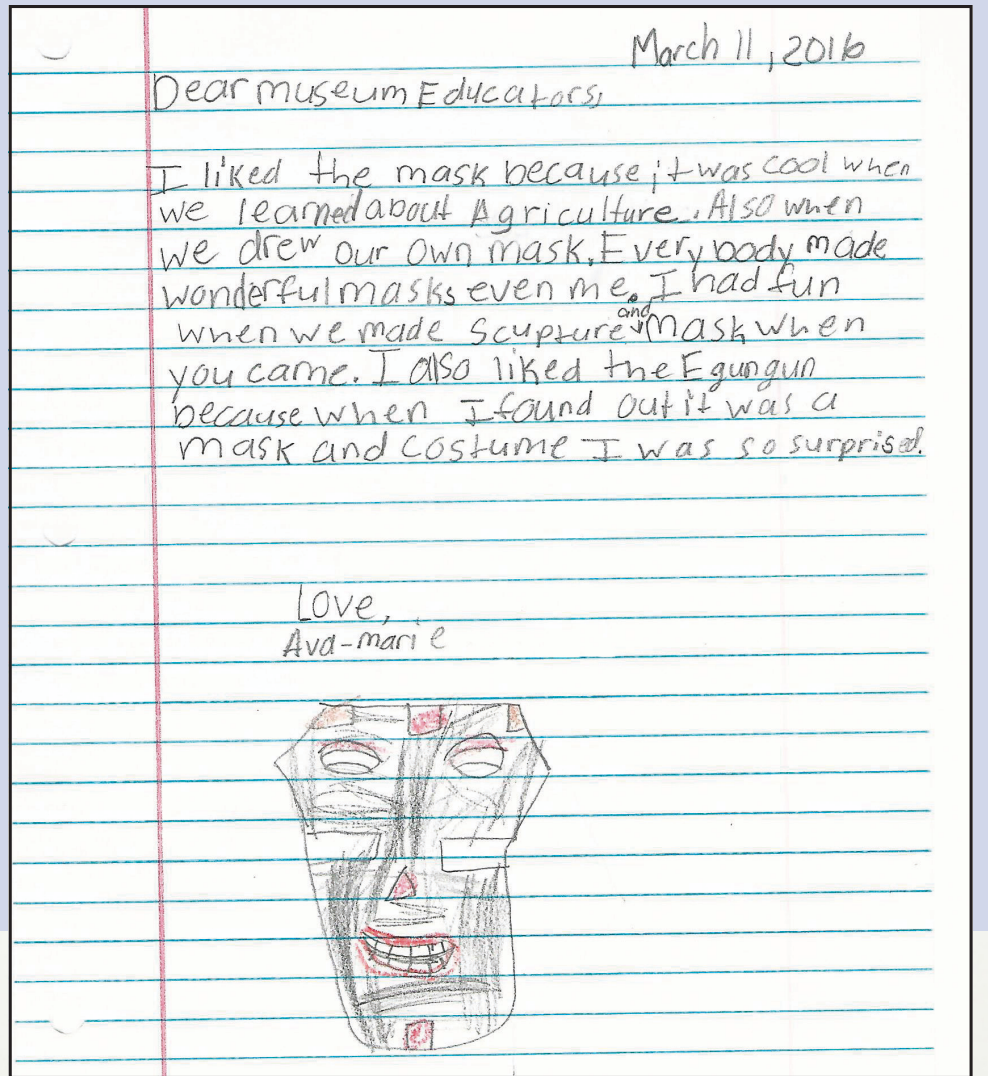 March 11, 2016
Dear museum Educators,
I liked the mask because it was cool when
we learned about Agriculture. Also when
we drew our own mask. Everybody made
wonderful masks even me. I had fun
when we made scupture and mask when
you came. I also liked the Egungun
because when I found out it was a
mask and costume I was so surprised.
Love,
Ava-marie